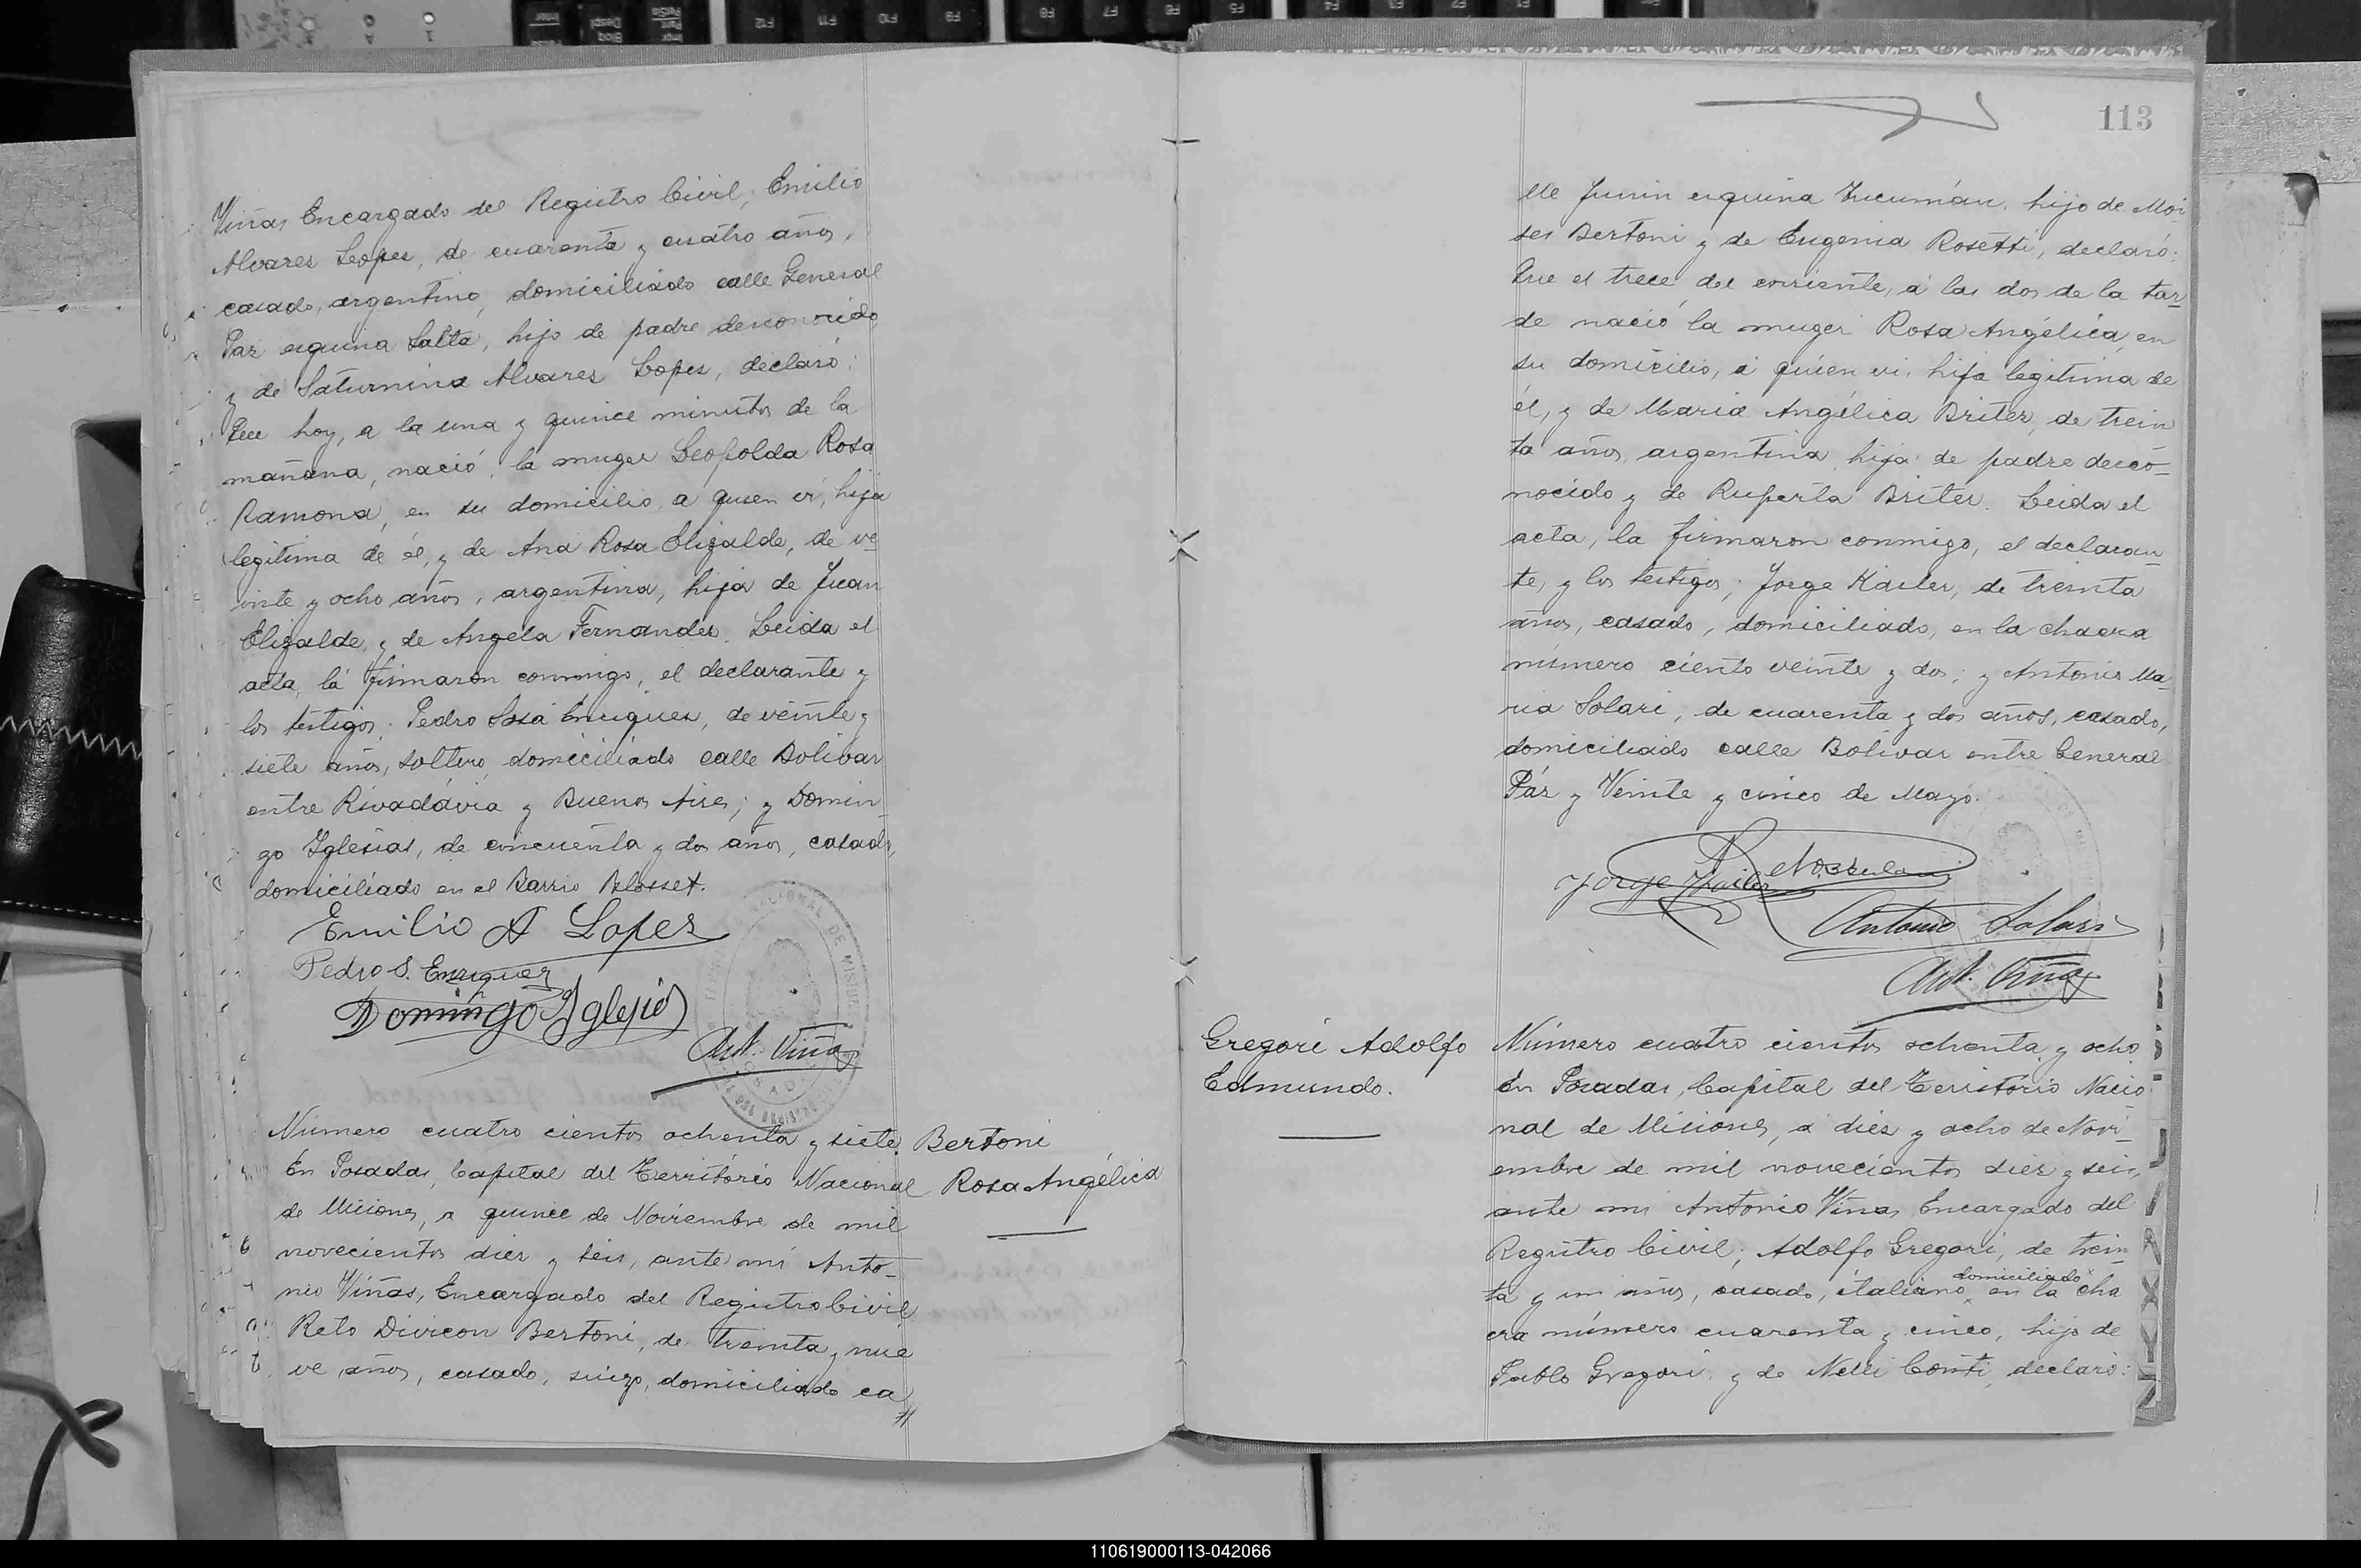 Viñas Encargado del Registro Civil, Emilio
Alvares Lopes, de cuarenta y cuatro años,
casado, argentino, domiciliado calle General
Paz esquina Salta, hijo de padre desconocido
y de Saturnina Alvares Lopes, declaró:
Que hoy, a la una y quince minutos de la
mañana, nació, la muger Leopolda Rosa
Ramona, en su domicilio, a quien ví, hija
legitima de él, y de Ana Rosa Elizalde, de ve-
inte y ocho años, argentina, hija de Juan
Elizalde y de Angela Fernandes. Leida el
acta, la firmaron conmigo, el declarante y
los testigos: Pedro Sosa Enriques, de veinte y
siete años, soltero, domiciliado calle Bolivar
entre Rivadávia y Buenos Aires; y Domin-
go Iglesias, de cincuenta y dos años, casado,
domiciliado en el Barrio Blosset.
Emilio A Lopez
Pedro S. Enriquez
Domingo Iglesias
Ant. Viñas
Número cuatro cientos ochenta y siete.
En Posadas, Capital del Território Nacional
de Misiones, a quince de Noviembre de mil
novecientos diez y seis, ante mí Anto-
nio Viñas, Encargado del Registro Civil
Reto Divicon Bertoni, de treinta y nue
ve años, casado, suizo, domiciliado ca
Bertoni
Rosa Angélica
113
lle Junin esquina Tucumán, hijo de Moi
ses Bertoni y de Eugenia Rosetti, declaró:
Que el trece del corriente, a las dos de la tar-
de nació la muger Rosa Angélica, en
su domicilio, a quien ví, hija legitima de
él, y de Maria Angélica Briter, de trein
ta años, argentina, hija de padre desco-
nocido y de Ruperta Briter. Leida el
acta, la firmaron conmigo, el declaran-
te, y los testigos; Jorge Kailer, de treinta
años, casado, domiciliado, en la chacra
número ciento veinte y dos; y Antonio Ma-
ria Solari, de cuarenta y dos años, casado,
domiciliado calle Bolivar entre General
Páz y Veinte y cinco de Mayo.
Jorge Kailer
Antonio Solari
Ant. Viñas
Gregori Adolfo
Edmundo.
Número cuatro cientos ochenta y ocho
En Posadas, Capital del Território Nacio-
nal de Misiones, a diez y ocho de Novi-
embre de mil novecientos diez y seis,
ante mi Antonio Viñas Encargado del
Registro Civil; Adolfo Gregori, de trein
ta y un años, casado, italiano, domiciliado en la cha
cra número cuarenta y cinco, hijo de
Pablo Gregori y de Nelli Conti, declaró:
110619000113-042066